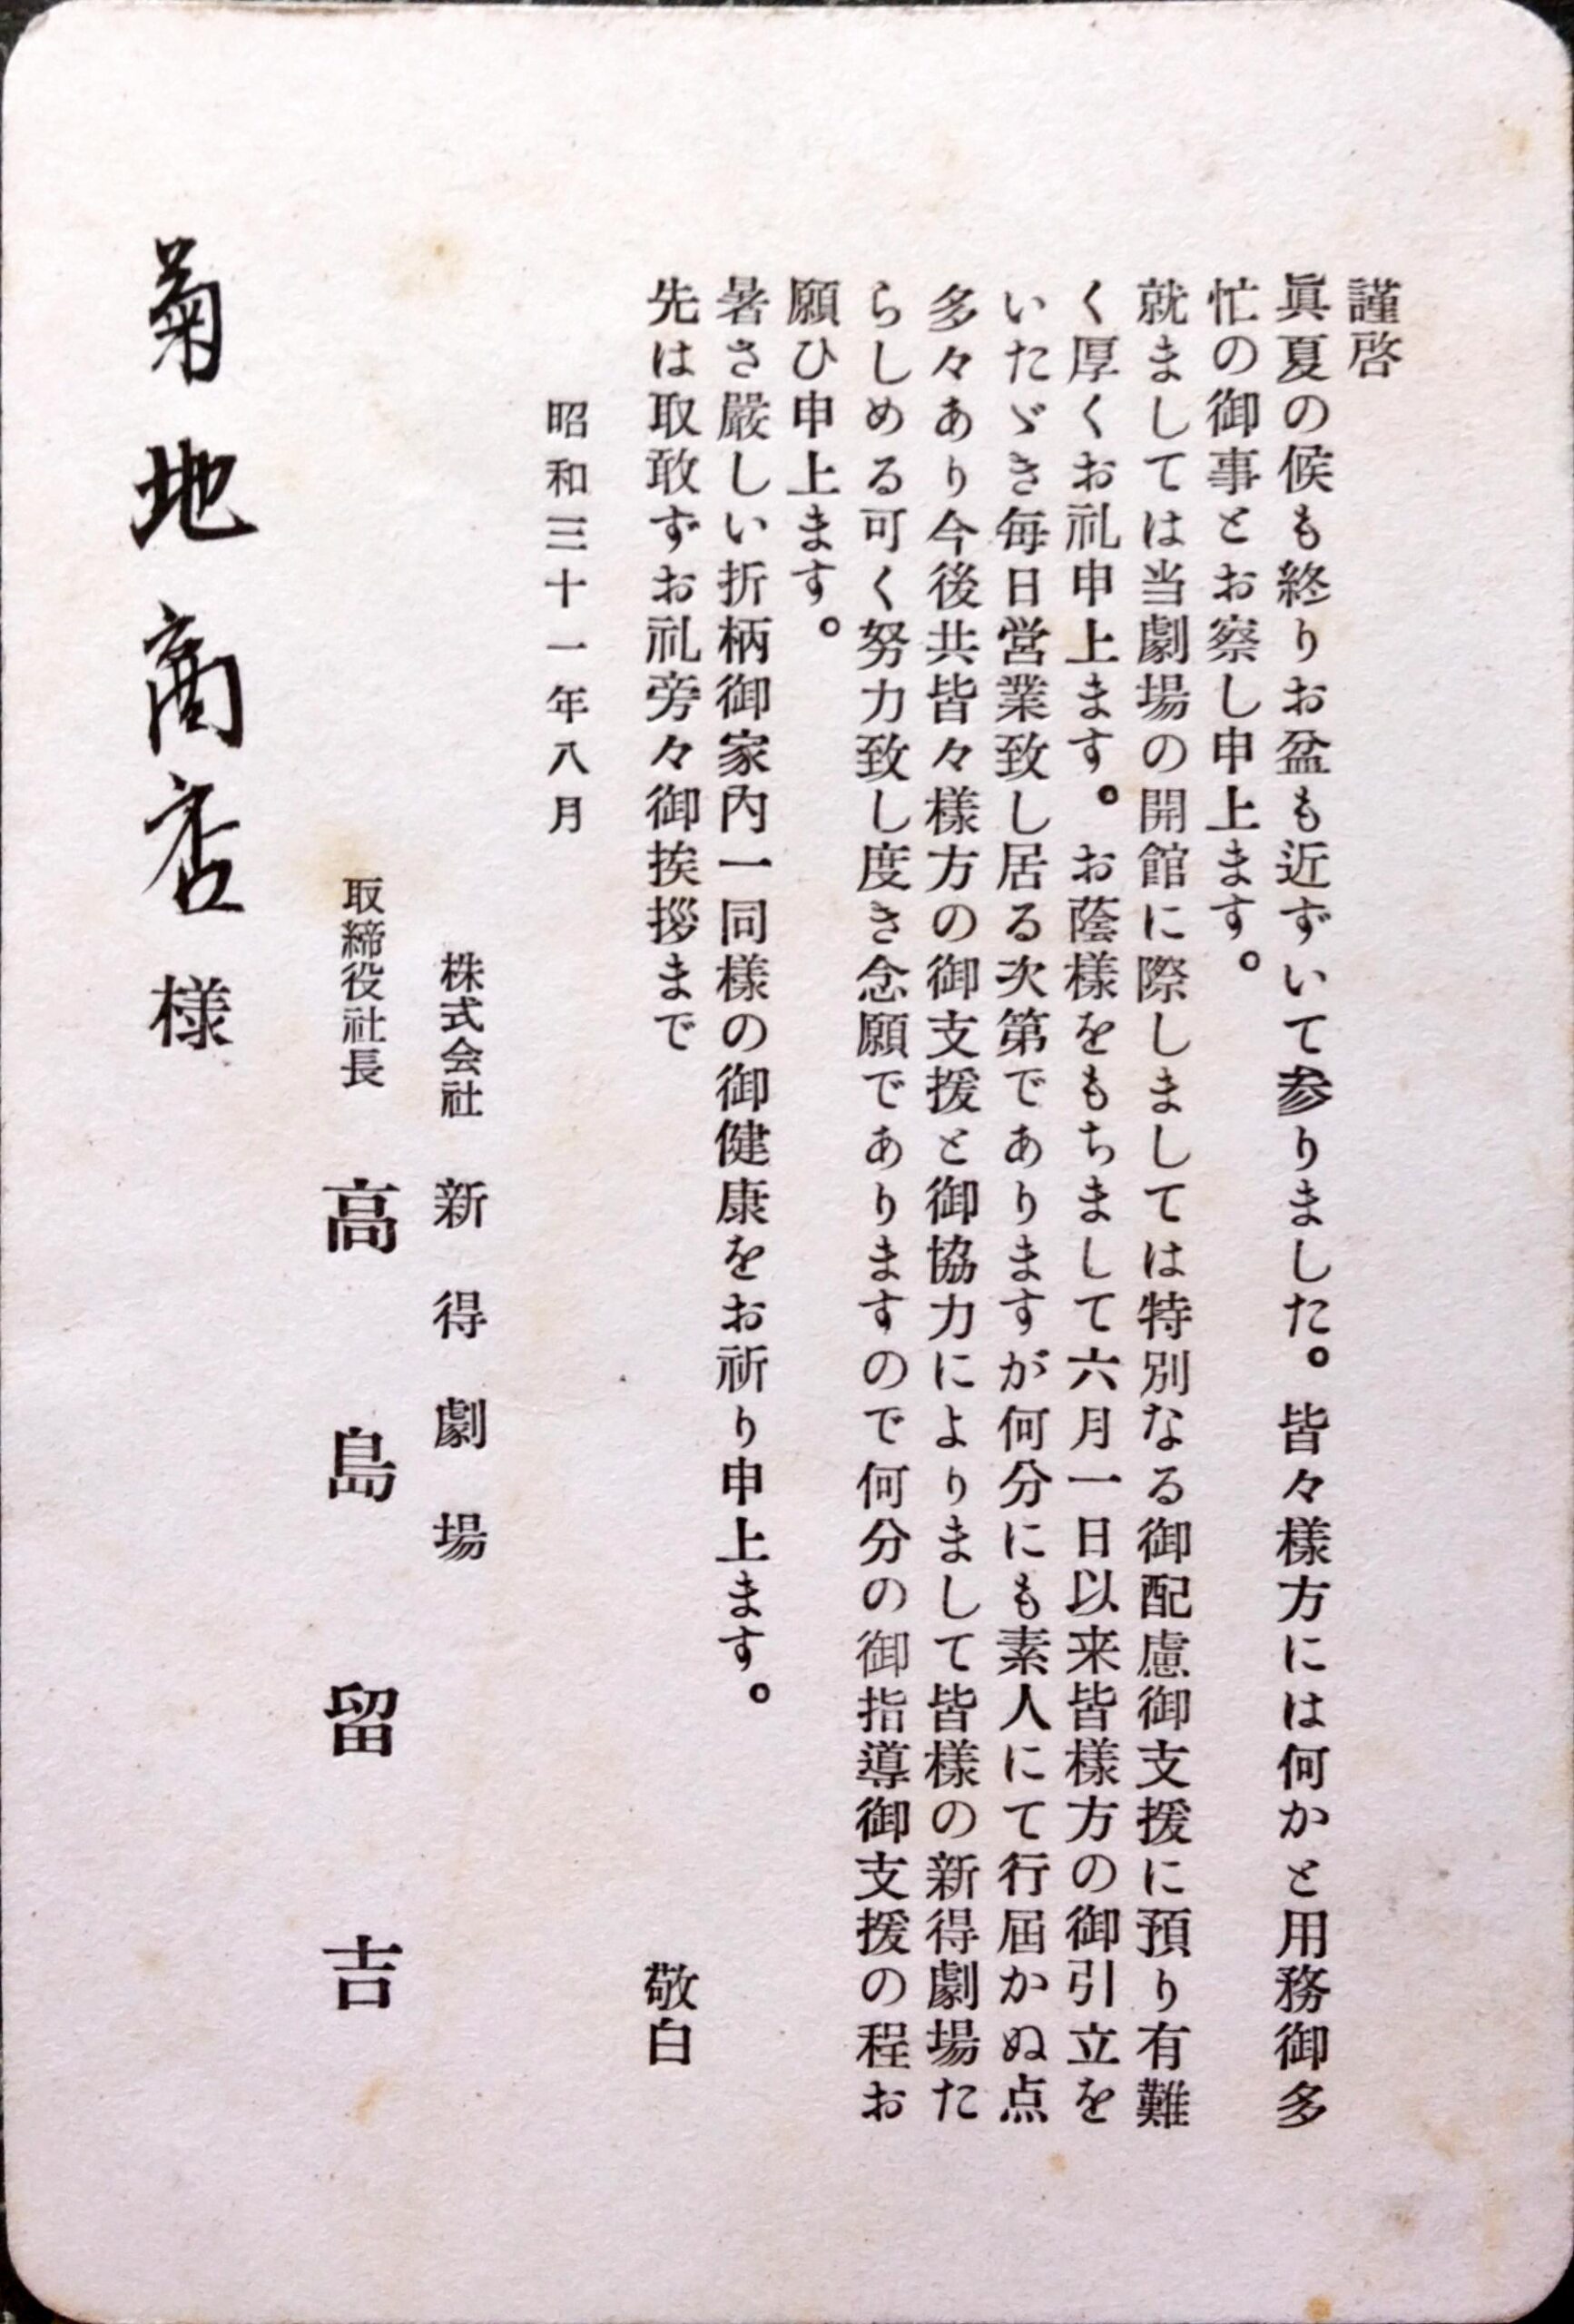 謹啓
眞夏の候も終りお盆も近ずいて参りました。皆々様方には何かと用務御多
忙の御事とお察し申上ます。
就ましては当劇場の開館に際しましては特別なる御配慮御支援に預り有難
く厚くお礼申上ます。お蔭様をもちまして六月一日以来皆様方の御引立を
いたゞき毎日営業致し居る次第でありますが何分にも素人にて行届かぬ点
多々あり今後共皆々様方の御支援と御協力によりまして皆様の新得劇場た
らしめる可く努力致し度き念願でありますので何分の御指導御支援の程お
願ひ申上ます。
暑さ嚴しい折柄御家内一同様の御健康をお祈り申上ます。
先は取敢ずお礼旁々御挨拶まで
敬白
昭和三十一年八月
株式会社 新得劇場
取締役社長 高島留吉
菊地商店様